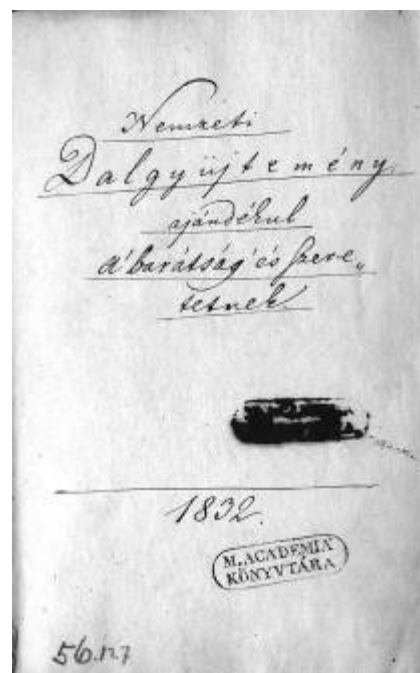 Nemzeti
Dalgyüjtemény
ajándékul
a' barátság' és szere„
tetnek.
1832.
M. ACADEMIA
KÖNYVTÁRA
56.127